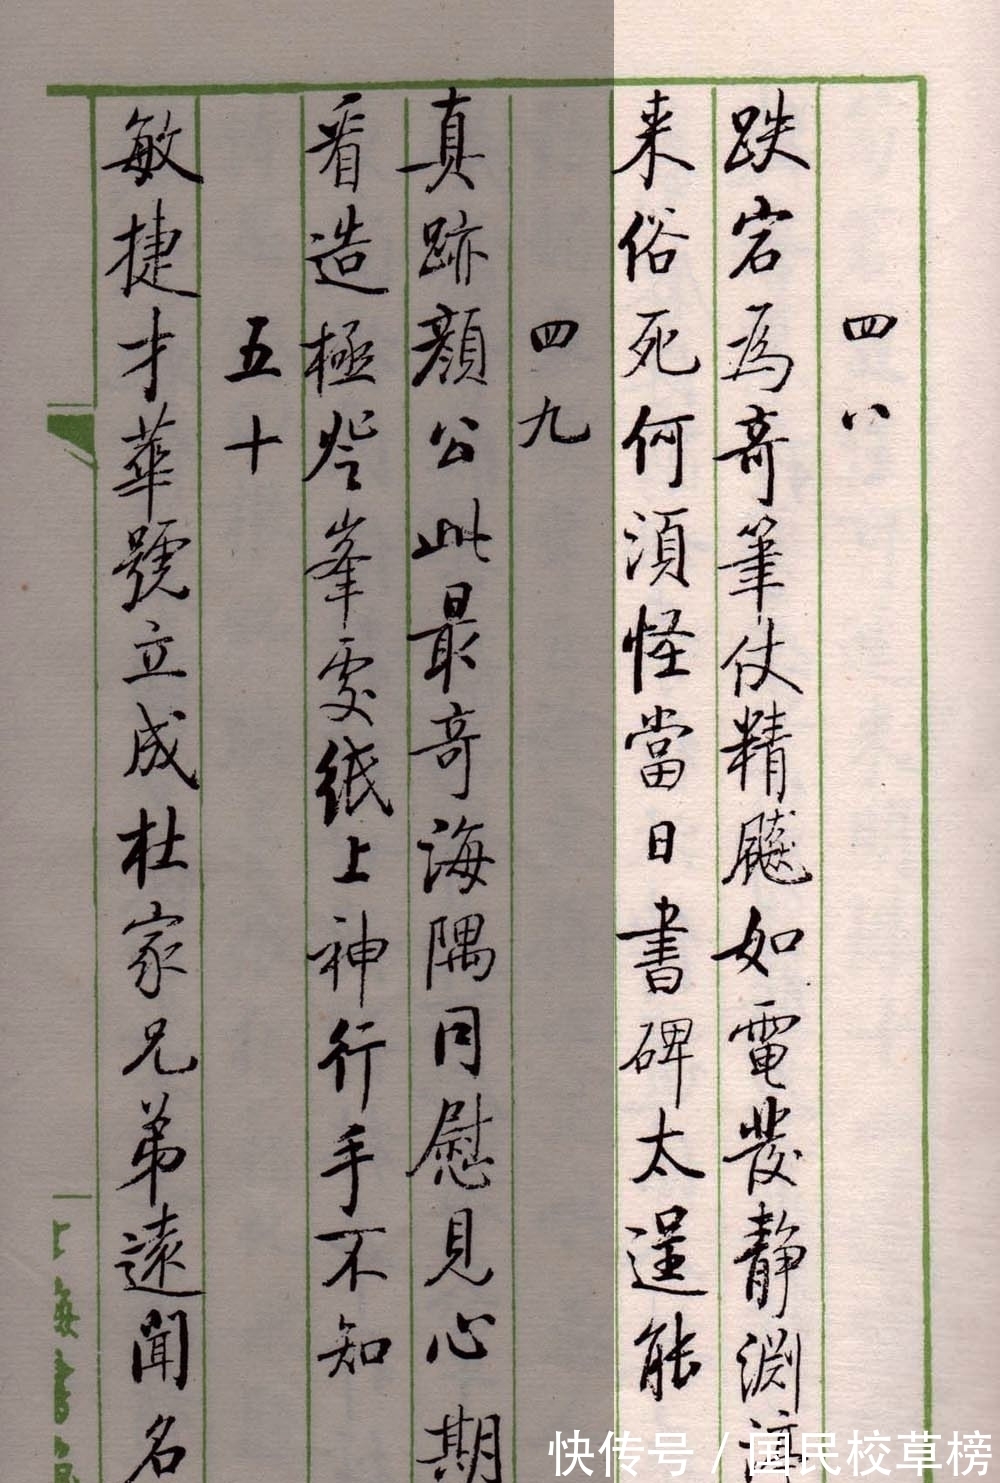 四八
跌宕爲奇筆仗精飈如電發靜淵渟
来俗死何須怪當日書碑太逞能
四九
真跡顔公此最奇海隅同慰見心期
看造極登峯處紙上神行手不知
五十
敏捷才華號立成杜家兄弟遠聞名
上海書
快传号/国民校草榜